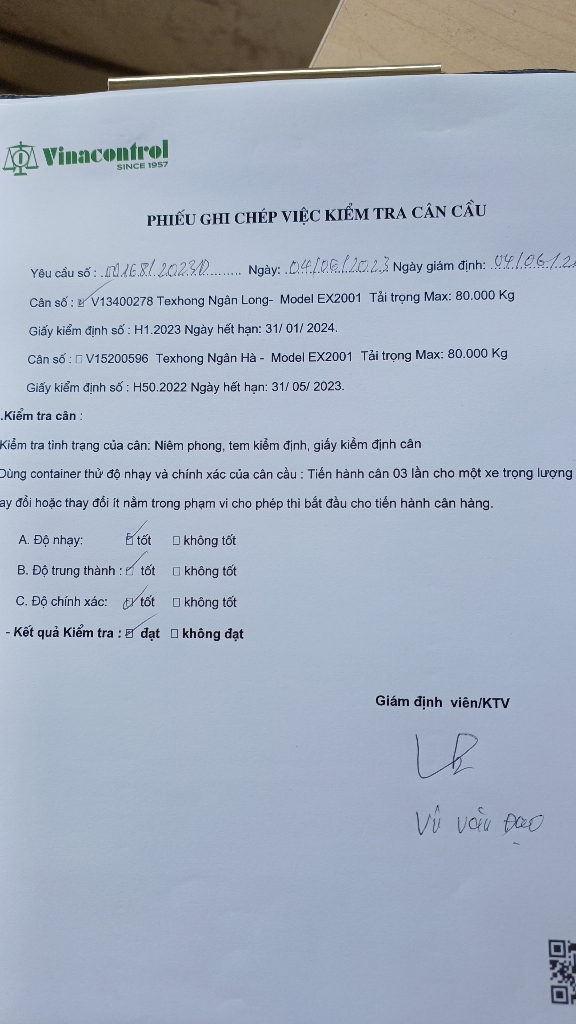 Vinacontrol
SINCE 1957
PHIẾU GHI CHÉP VIỆC KIỂM TRA CÂN CẦU
Yêu cầu số : Ngày: 04/06/2023 Ngày giám định: 04/06/2
Cân số : V13400278 Texhong Ngân Long- Model EX2001 Tải trọng Max: 80.000 Kg
Giấy kiểm định số : H1.2023 Ngày hết hạn: 31/ 01/ 2024.
Cân số : V15200596 Texhong Ngân Hà - Model EX2001 Tải trọng Max: 80.000 Kg
Giấy kiểm định số : H50.2022 Ngày hết hạn: 31/ 05/ 2023.
.Kiểm tra cân :
Kiểm tra tình trạng của cân: Niêm phong, tem kiểm định, giấy kiểm định cân
Dùng container thử độ nhạy và chính xác của cân cầu : Tiến hành cân 03 lần cho một xe trọng lượng
ay đổi hoặc thay đổi ít nằm trong phạm vi cho phép thì bắt đầu cho tiến hành cân hàng.
A. Độ nhạy: tốt không tốt
B. Độ trung thành : tốt không tốt
C. Độ chính xác: tốt không tốt
- Kết quả Kiểm tra : đạt không đạt
Giám định viên/KTV
Vũ Văn Đạo